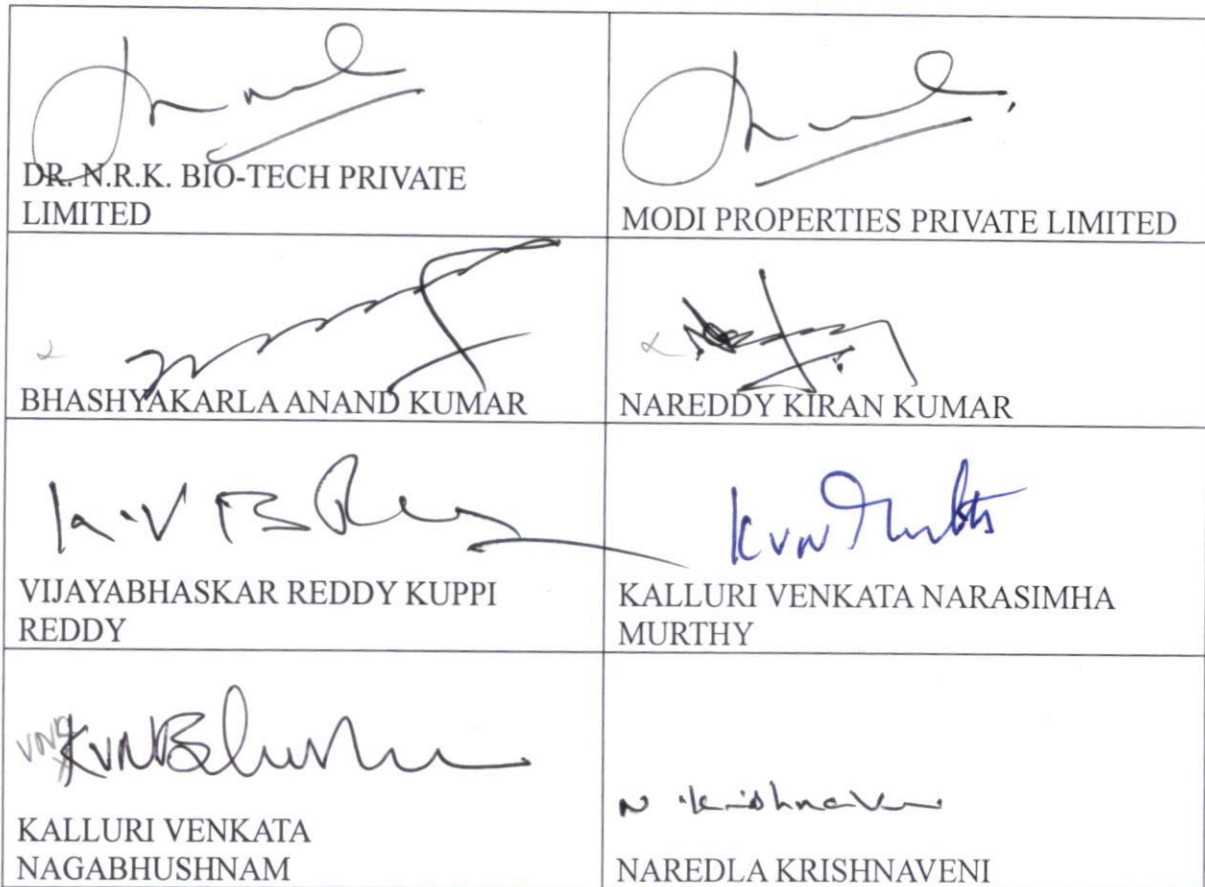 DR. N.R.K. BIO-TECH PRIVATE
LIMITED
MODI PROPERTIES PRIVATE LIMITED
BHASHYAKARLA ANAND KUMAR
NAREDDY KIRAN KUMAR
K.V B Reddy
VIJAYABHASKAR REDDY KUPPI
REDDY
KVN Murthy
KALLURI VENKATA NARASIMHA
MURTHY
KVNBhushn
KALLURI VENKATA
NAGABHUSHNAM
N. Krishnaveni
NAREDLA KRISHNAVENI